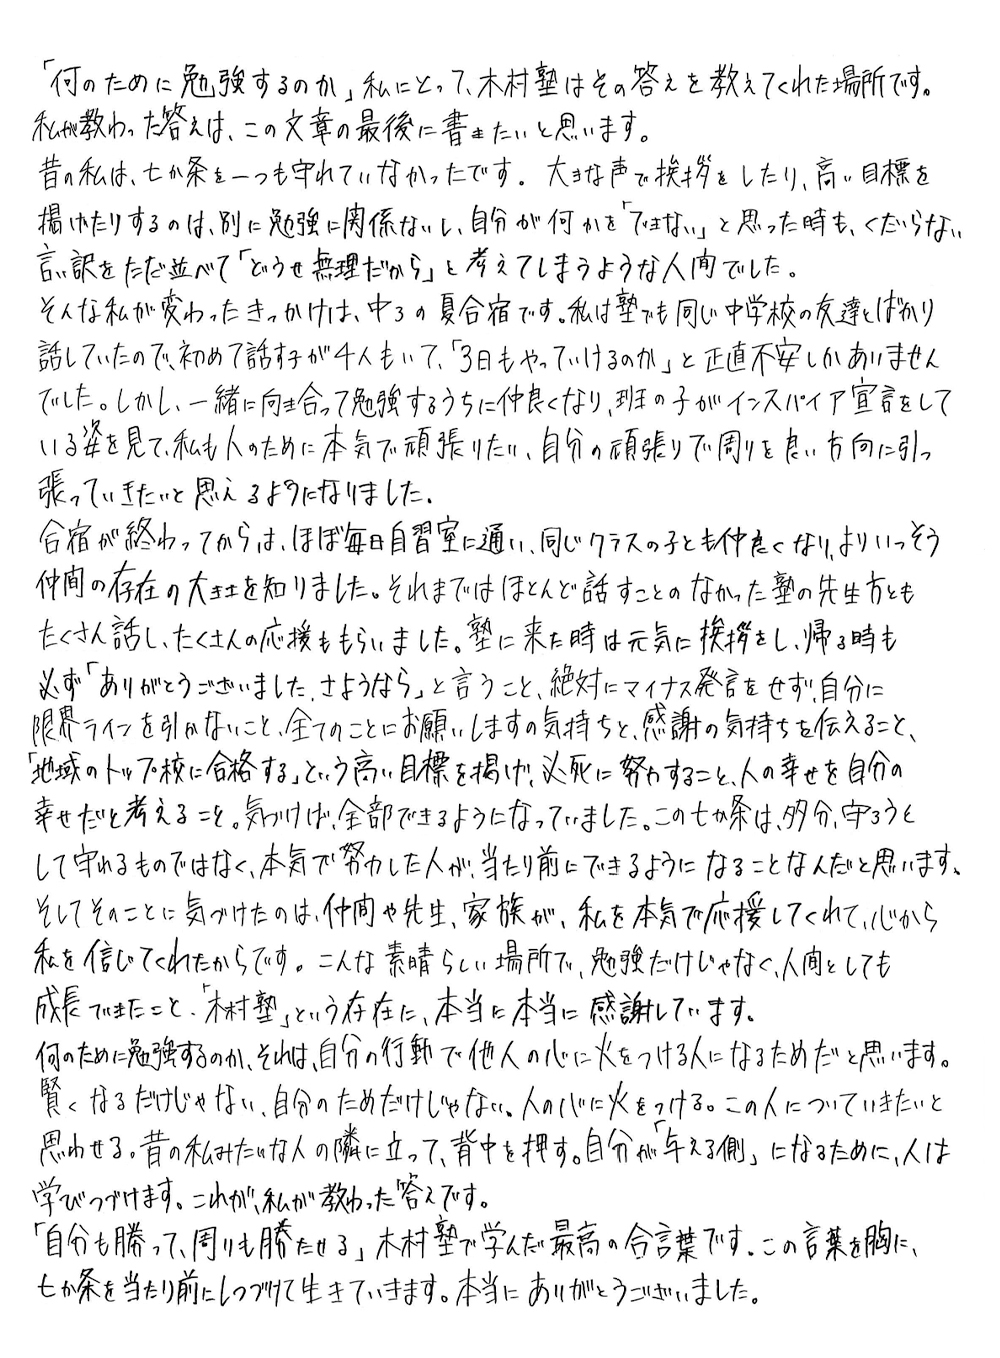 「何のために勉強するのか」私にとって、木村塾はその答えを教えてくれた場所です。
私が教わった答えは、この文章の最後に書きたいと思います。
昔の私は、七か条を一つも守れていなかったです。大きな声で挨拶をしたり、高い目標を
掲げたりするのは、別に勉強に関係ないし、自分が何かを「できない」と思った時も、くだらない
言い訳をただ並べて「どうせ無理だから」と考えてしまうような人間でした。
そんな私が変わったきっかけは、中3の夏合宿です。私は塾でも同じ中学校の友達とばかり
話していたので、初めて話す子が4人もいて、「3日もやっていけるのか」と正直不安しかありません
でした。しかし、一緒に向き合って勉強するうちに仲良くなり、班の子がインスパイア宣言をして
いる姿を見て、私も人のために本気で頑張りたい、自分の頑張りで周りを良い方向に引っ
張っていきたいと思えるようになりました。
合宿が終わってからは、ほぼ毎日自習室に通い、同じクラスの子とも仲良くなり、よりいっそう
仲間の存在の大きさを知りました。それまではほとんど話すことのなかった塾の先生方とも
たくさん話し、たくさんの応援ももらいました。塾に来た時は元気に挨拶をし、帰る時も
必ず「ありがとうございました、さようなら」と言うこと、絶対にマイナス発言をせず、自分に
限界ラインを引かないこと、全てのことにお願いしますの気持ちと、感謝の気持ちを伝えること、
「地域のトップ校に合格する」という高い目標を掲げ、必死に努力すること、人の幸せを自分の
幸せだと考えること。気づけば、全部できるようになっていました。この七か条は、多分、守ろうと
して守れるものではなく、本気で努力した人が、当たり前にできるようになることなんだと思います。
そしてそのことに気づけたのは、仲間や先生、家族が、私を本気で応援してくれて、心から
私を信じてくれたからです。こんな素晴らしい場所で、勉強だけじゃなく、人間としても
成長できたこと、「木村塾」という存在に、本当に本当に感謝しています。
何のために勉強するのか、それは、自分の行動で他人の心に火をつける人になるためだと思います。
賢くなるだけじゃない、自分のためだけじゃない。人の心に火をつける。この人についていきたいと
思わせる。昔の私みたいな人の隣に立って、背中を押す。自分が「与える側」になるために、人は
学びつづけます。これが、私が教わった答えです。
「自分も勝って、周りも勝たせる」木村塾で学んだ最高の合言葉です。この言葉を胸に、
七か条を当たり前にしつづけて生きていきます。本当にありがとうございました。